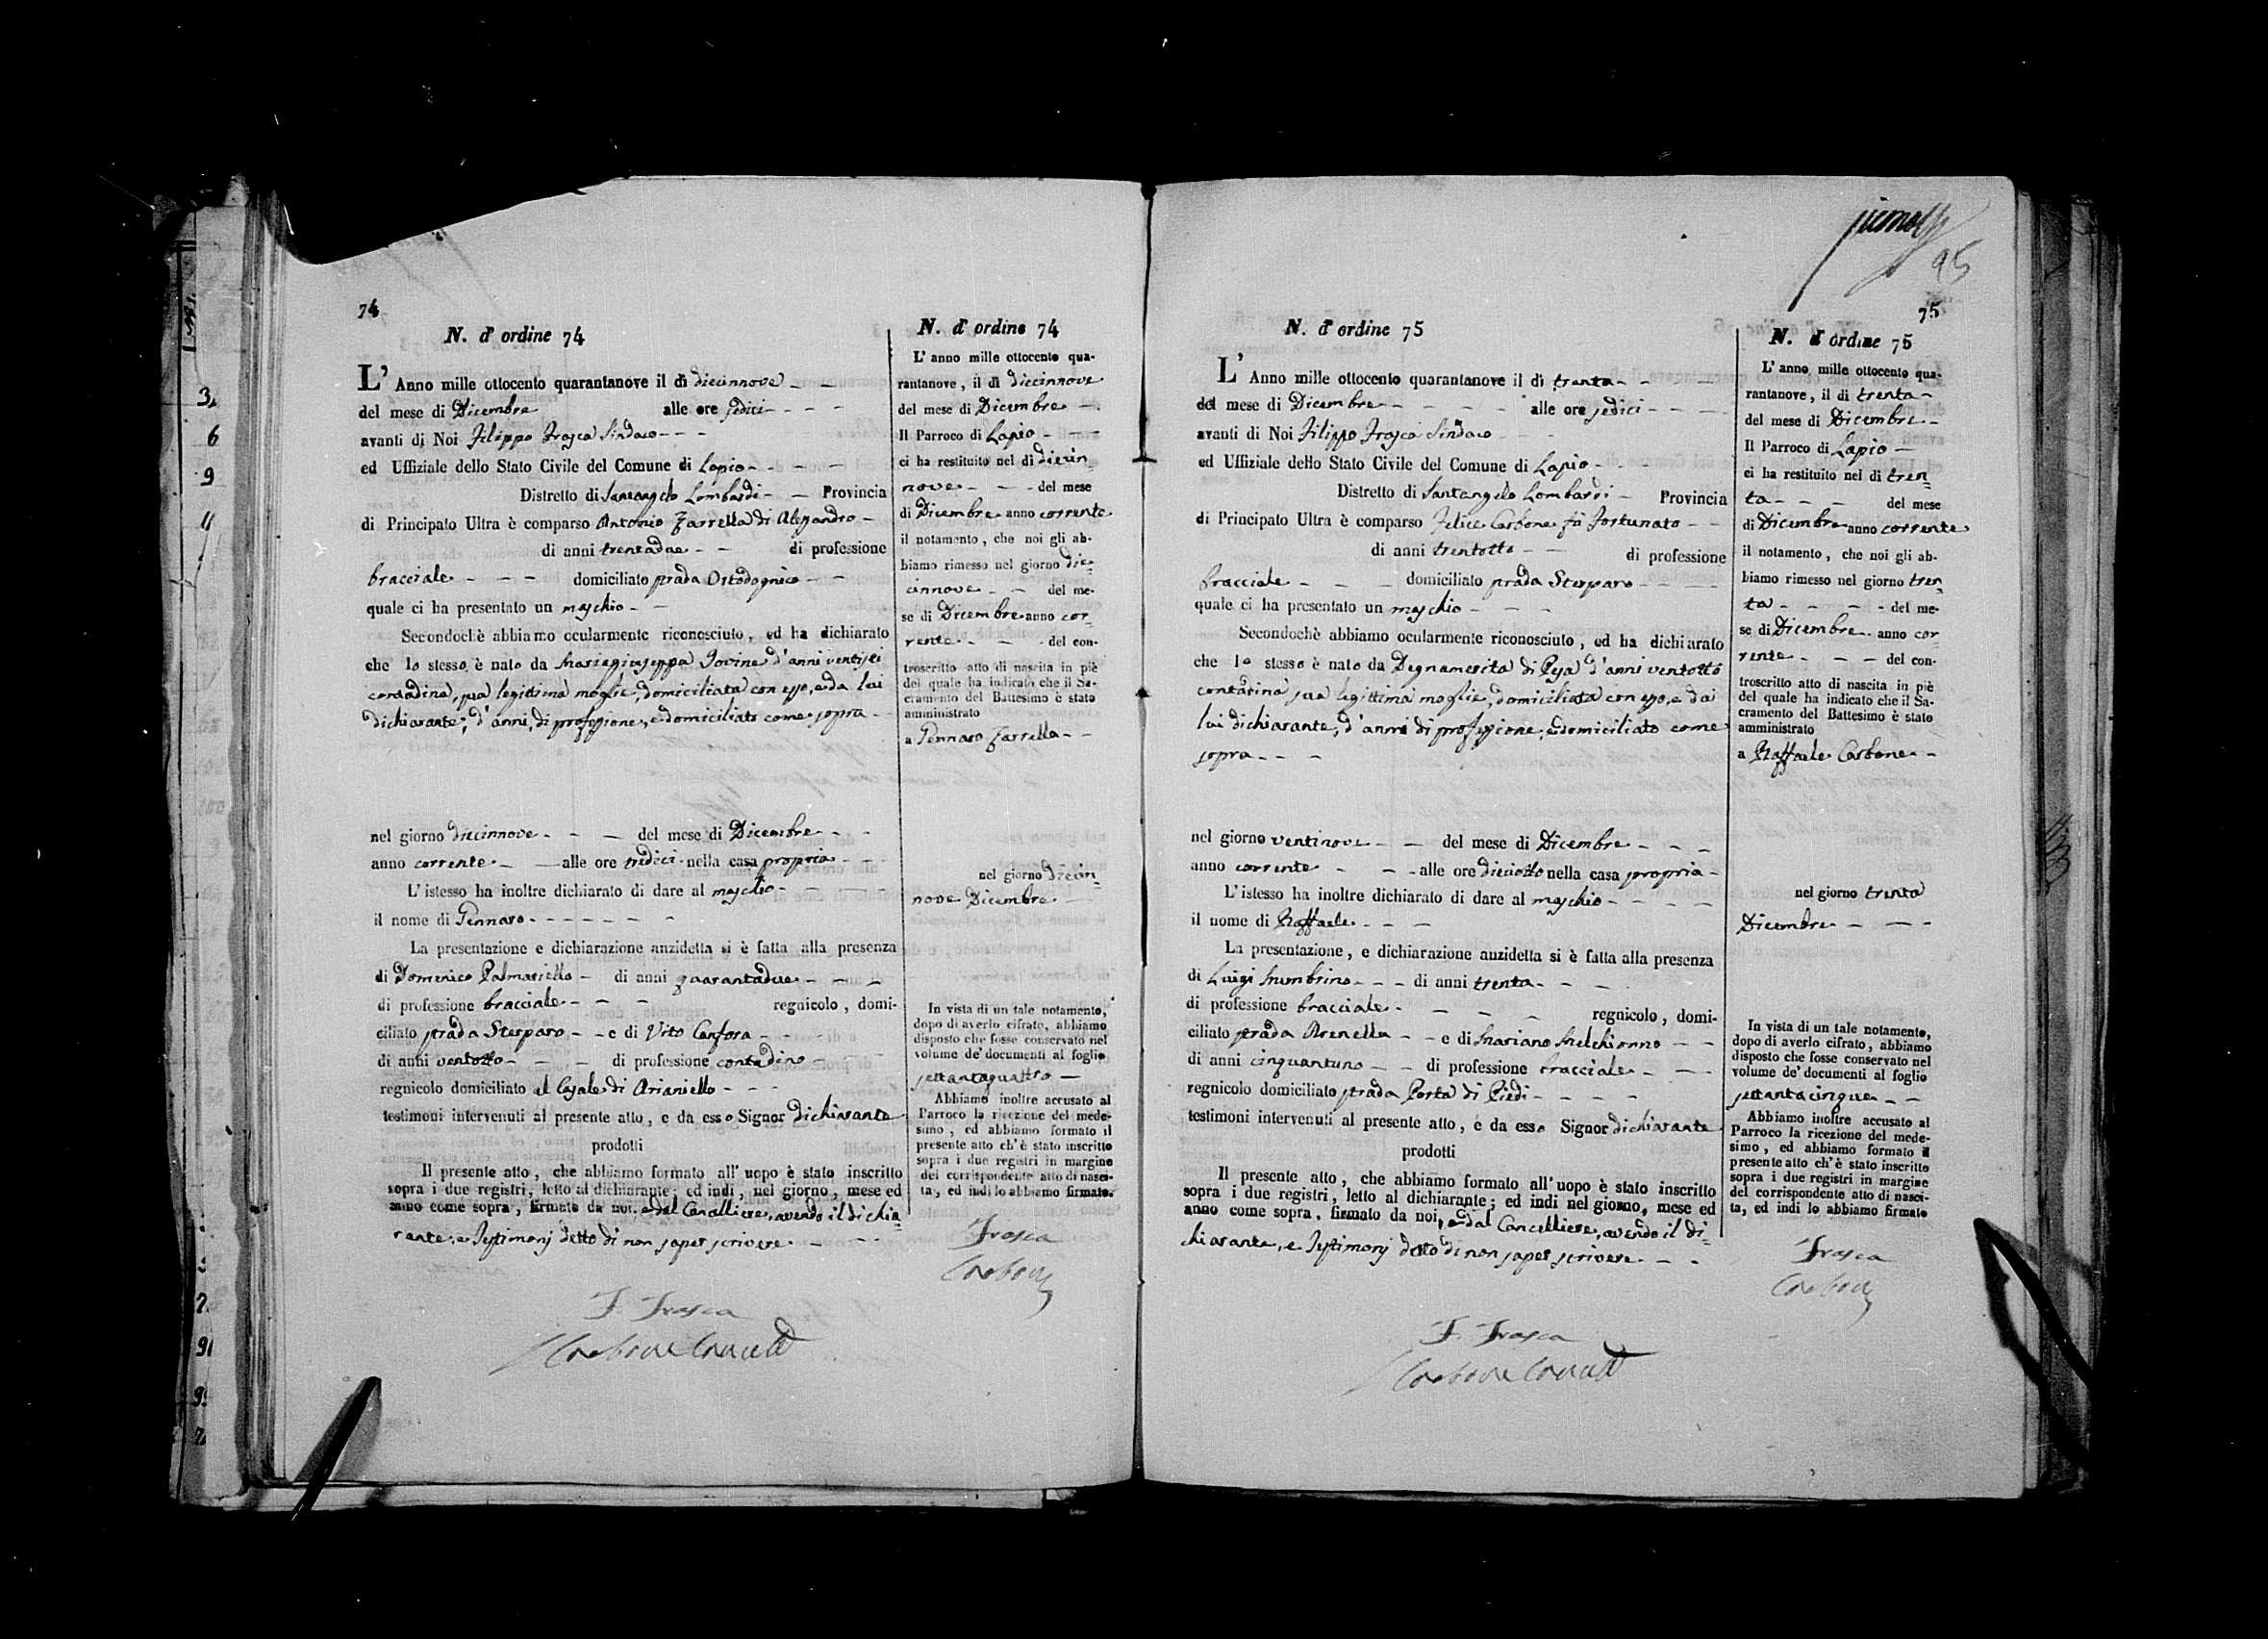 74
N. d'ordine 74
L' Anno mille ottocento quarantanove il dì diecinnove
del mese di Dicembre alle ore sedici
avanti di Noi Filippo Frasca Sindaco
ed Uffiziale dello Stato Civile del Comune di Lapio
Distretto di Santangelo Lombardi Provincia
di Principato Ultra è comparso Antonio Zarrella di Alesandro
di anni trentadue di professione
bracciale domiciliato strada Ortodognico
quale ci ha presentato un maschio
Secondochè abbiamo ocularmente riconosciuto, ed ha dichiarato
che lo stesso è nato da Mariagiuseppa Iovine d'anni ventisei
contadina, sua legittima moglie, domiciliata con esso, e da lui
dichiarante, d'anni, di professione, e domiciliato come sopra
nel giorno diecinnove del mese di Dicembre
anno corrente alle ore tredici nella casa propria
L'istesso ha inoltre dichiarato di dare al maschio
il nome di Gennaro
La presentazione e dichiarazione anzidetta si è fatta alla presenza
di Domenico Palmariello di anni quarantadue
di professione bracciale regnicolo, domi-
ciliato strada Sterparo e di Vito Canfora
di anni ventotto di professione contadino
regnicolo domiciliato al Casale di Arianiello
testimoni intervenuti al presente atto, e da esso Signor dichiarante
prodotti
Il presente atto, che abbiamo formato all'uopo è stato inscritto
sopra i due registri, letto al dichiarante; ed indi, nel giorno, mese ed
anno come sopra, firmato da noi, e dal Cancelliere, avendo il dichia=
rante, e Testimonj detto di non saper scrivere
F. Frasca
Carbone Cancell
N. d'ordine 74
L'anno mille ottocento qua-
rantanove, il dì diecinnove
del mese di Dicembre
Il Parroco di Lapio
ci ha restituito nel dì diecin=
nove del mese
di Dicembre anno corrente
il notamento, che noi gli ab-
biamo rimesso nel giorno die=
cinnove del me-
se di Dicembre anno cor=
rente del con-
troscritto atto di nascita in piè
del quale ha indicato che il Sa-
cramento del Battesimo è stato
amministrato
a Gennaro Zarrella
nel giorno diecin=
nove Dicembre
In vista di un tale notamento,
dopo di averlo cifrato, abbiamo
disposto che fosse conservato nel
volume de' documenti al foglio
settantaquattro
Abbiamo inoltre accusato al
Parroco la ricezione del mede-
simo, ed abbiamo formato il
presente atto ch'è stato inscritto
sopra i due registri in margine
del corrispondente atto di nasci-
ta, ed indi lo abbiamo firmato.
Frasca
Carbone
95
75
N. d'ordine 75
L' Anno mille ottocento quarantanove il dì trenta
del mese di Dicembre alle ore sedici
avanti di Noi Filippo Frasca Sindaco
ed Uffiziale dello Stato Civile del Comune di Lapio
Distretto di Santangelo Lombardi Provincia
di Principato Ultra è comparso Felice Carbone fù Fortunato
di anni trentotto di professione
bracciale domiciliato strada Sterparo
quale ci ha presentato un maschio
Secondochè abbiamo ocularmente riconosciuto, ed ha dichiarato
che lo stesso è nato da Degnamerita di Pesa d'anni ventotto
contadina sua legittima moglie, domiciliata con esso, e da
lui dichiarante, d'anni di professione, e domiciliato come
sopra
nel giorno ventinove del mese di Dicembre
anno corrente alle ore dieciotto nella casa propria
L'istesso ha inoltre dichiarato di dare al maschio
il nome di Raffaele
La presentazione, e dichiarazione anzidetta si è fatta alla presenza
di Luigi Mombrino di anni trenta
di professione bracciale regnicolo, domi-
ciliato strada Arenella e di Mariano Melchionno
di anni cinquantuno di professione bracciale
regnicolo domiciliato strada Porta di Piedi
testimoni intervenuti al presente atto, e da esso Signor dichiarante
prodotti
Il presente atto, che abbiamo formato all'uopo è stato inscritto
sopra i due registri, letto al dichiarante; ed indi nel giorno, mese ed
anno come sopra, firmato da noi, e dal Cancelliere, avendo il di=
chiarante, e Testimonj detto di non saper scrivere
F. Frasca
Carbone Cancell
N. d'ordine 75
L'anno mille ottocento qua-
rantanove, il dì trenta
del mese di Dicembre
Il Parroco di Lapio
ci ha restituito nel dì tren=
ta del mese
di Dicembre anno corrente
il notamento, che noi gli ab-
biamo rimesso nel giorno tren=
ta del me-
se di Dicembre anno cor=
rente del con-
troscritto atto di nascita in piè
del quale ha indicato che il Sa-
cramento del Battesimo è stato
amministrato
a Raffaele Carbone
nel giorno trenta
Dicembre
In vista di un tale notamento,
dopo di averlo cifrato, abbiamo
disposto che fosse conservato nel
volume de' documenti al foglio
settantacinque
Abbiamo inoltre accusato al
Parroco la ricezione del mede-
simo, ed abbiamo formato il
presente atto ch'è stato inscritto
sopra i due registri in margine
del corrispondente atto di nasci-
ta, ed indi lo abbiamo firmato
Frasca
Carbone